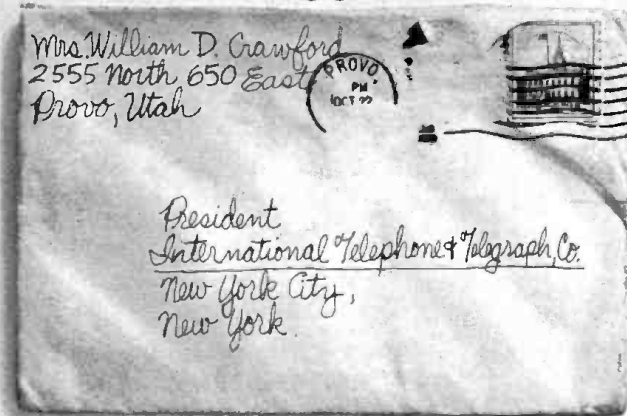 Mrs William D. Crawford
2555 North 650 East
Provo, Utah
PROVO,
PM
OCT 22
President
International Telephone & Telegraph, Co.
New York City,
New York.